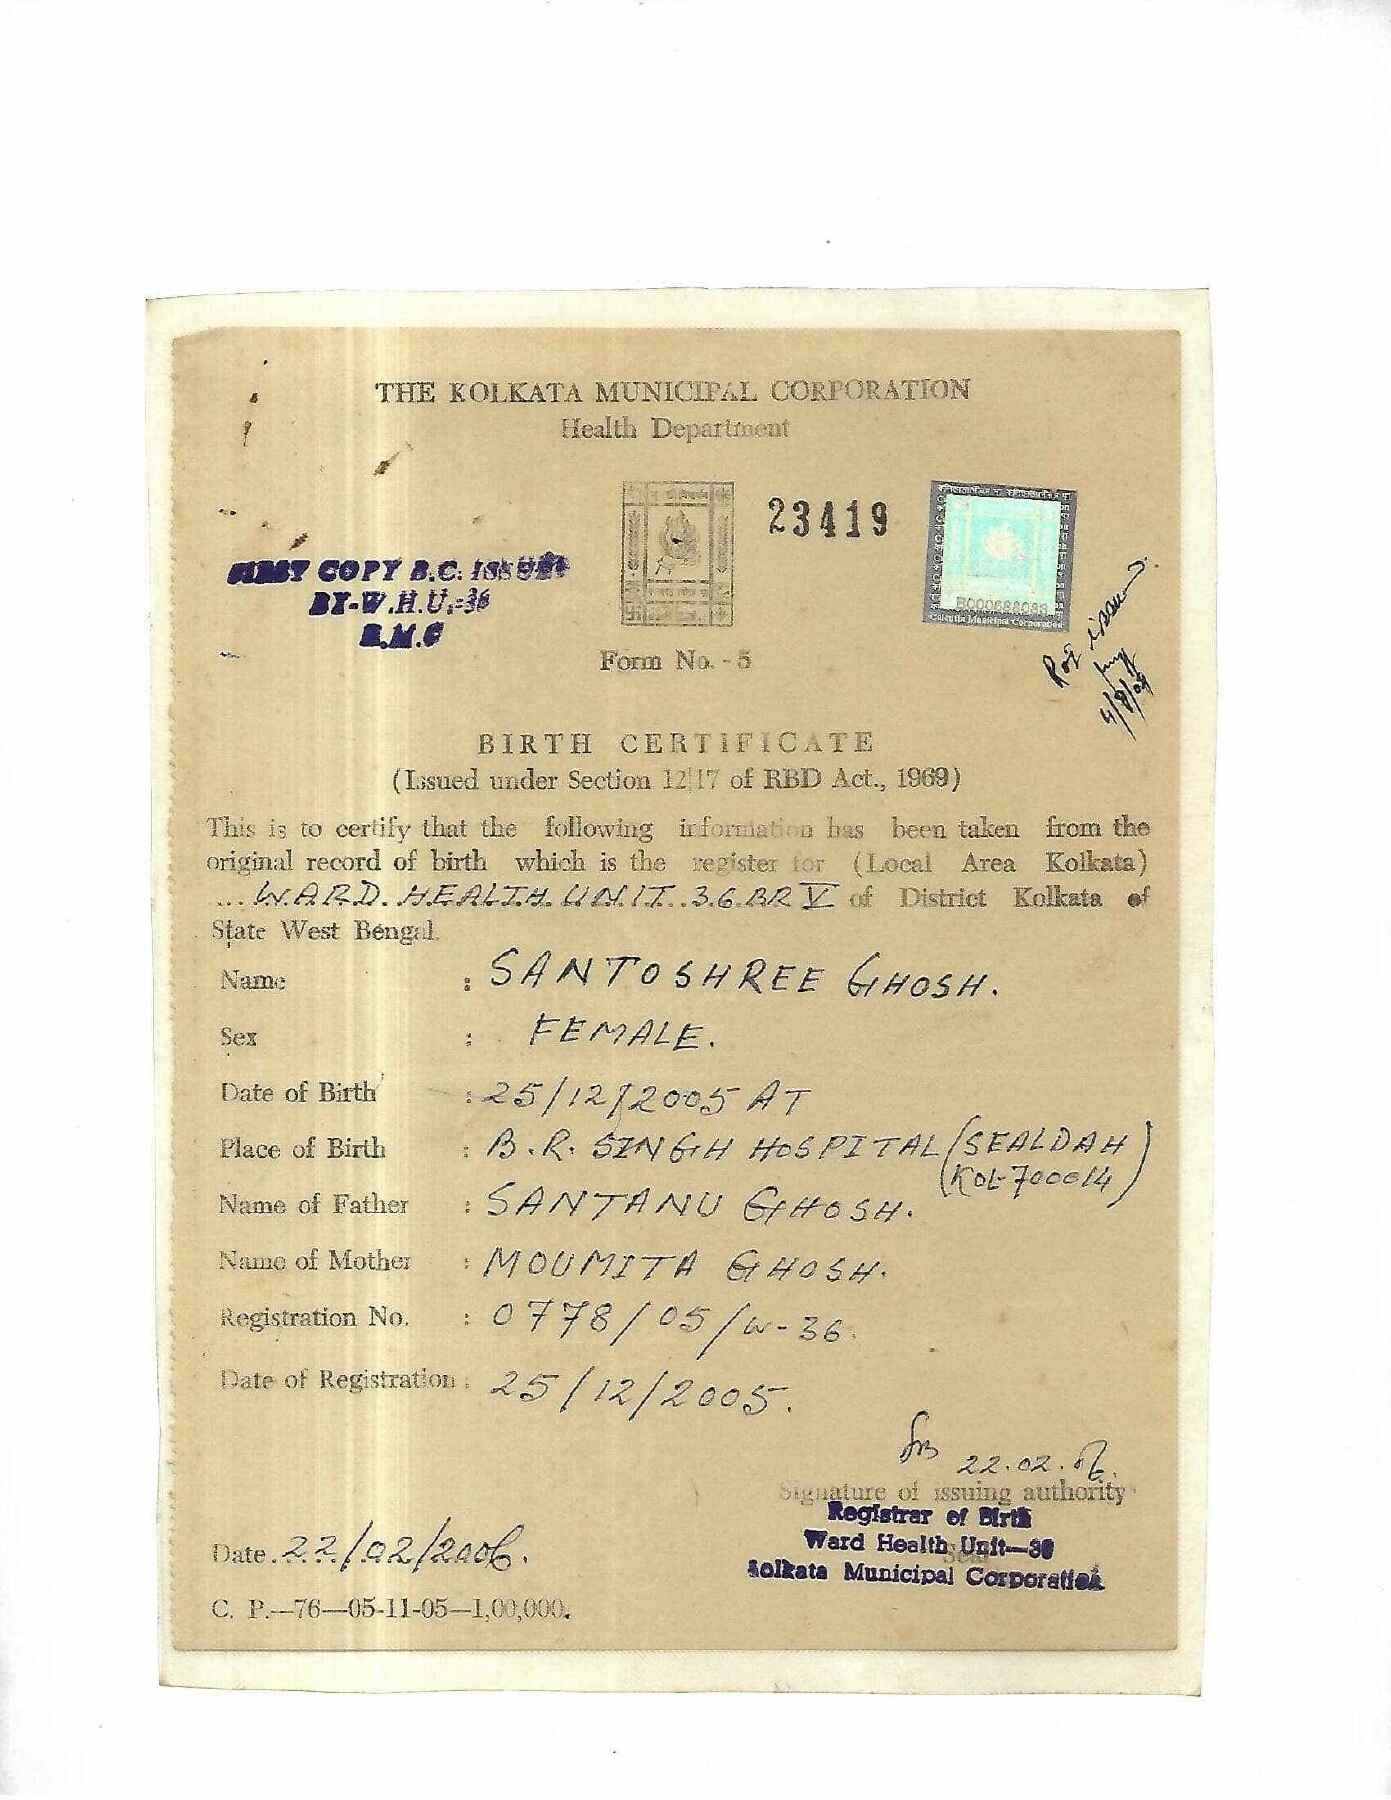 THE KOLKATA MUNICIPAL CORPORATION
Health Department
23419
FIRST COPY B.C. ISSUED
BY-W.H.U.-36
K.M.C
Calcutta Municipal Corporation
Form No. - 5
4/8/09
BIRTH CERTIFICATE
(Issued under Section 12|17 of RBD Act., 1969)
This is to certify that the following information has been taken from the
original record of birth which is the register for (Local Area Kolkata)
... WARD. HEALTH. UNIT. 36. BR V of District Kolkata of
State West Bengal.
Name : SANTOSHREE GHOSH.
Sex : FEMALE.
Date of Birth : 25/12/2005 AT
Place of Birth : B.R. SINGH HOSPITAL (SEALDAH
KOL-700014)
Name of Father : SANTANU GHOSH.
Name of Mother : MOUMITA GHOSH.
Registration No. : 0778/05/W-36.
Date of Registration : 25/12/2005.
22.02.06.
Signature of issuing authority
Registrar of Birth
Ward Health Unit—36
Seal
Kolkata Municipal Corporation
Date. 22/02/2006.
C. P.—76—05-11-05—1,00,000.